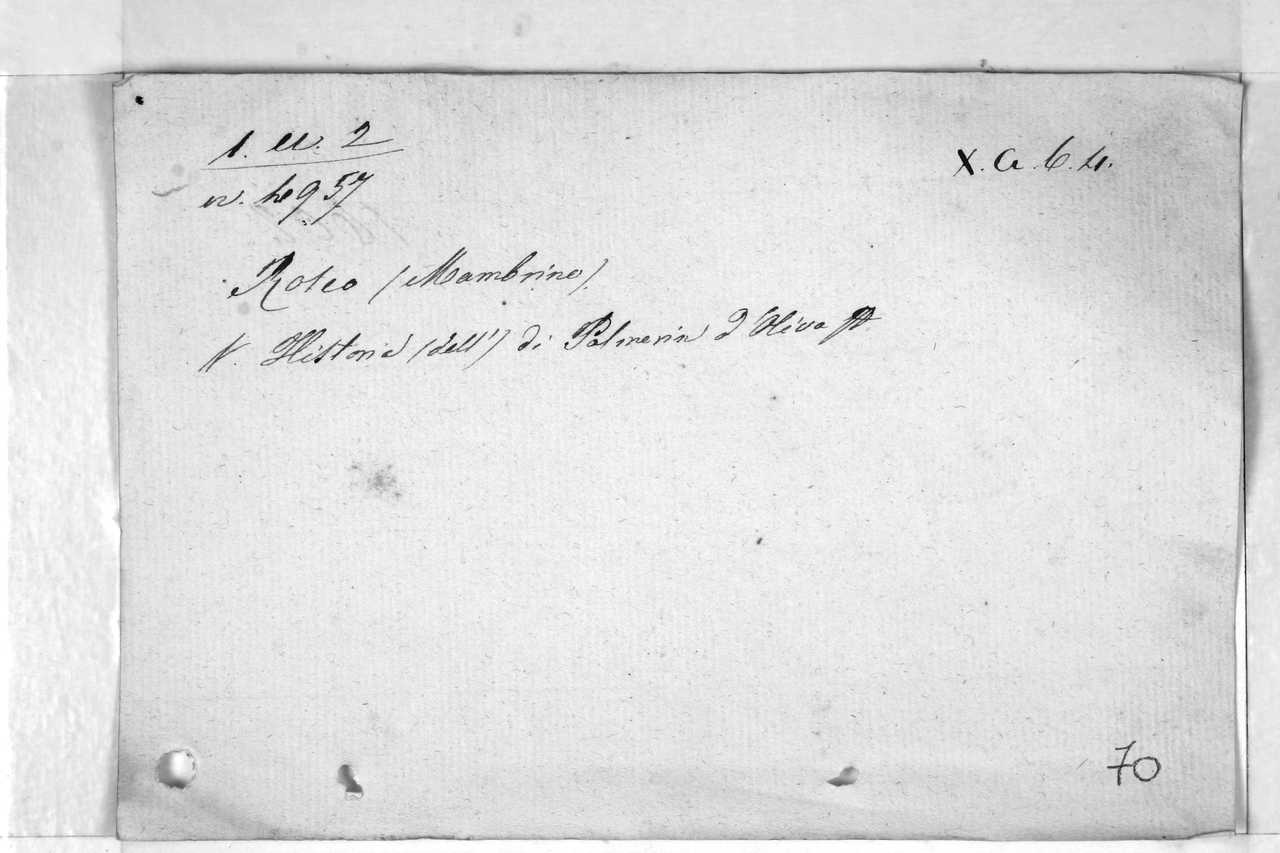 X. a. 6. 4.
1. u. 2
n. 4957
Roseo (Mambrino).
V. Historia (dell') di Palmerin d'Oliva
70